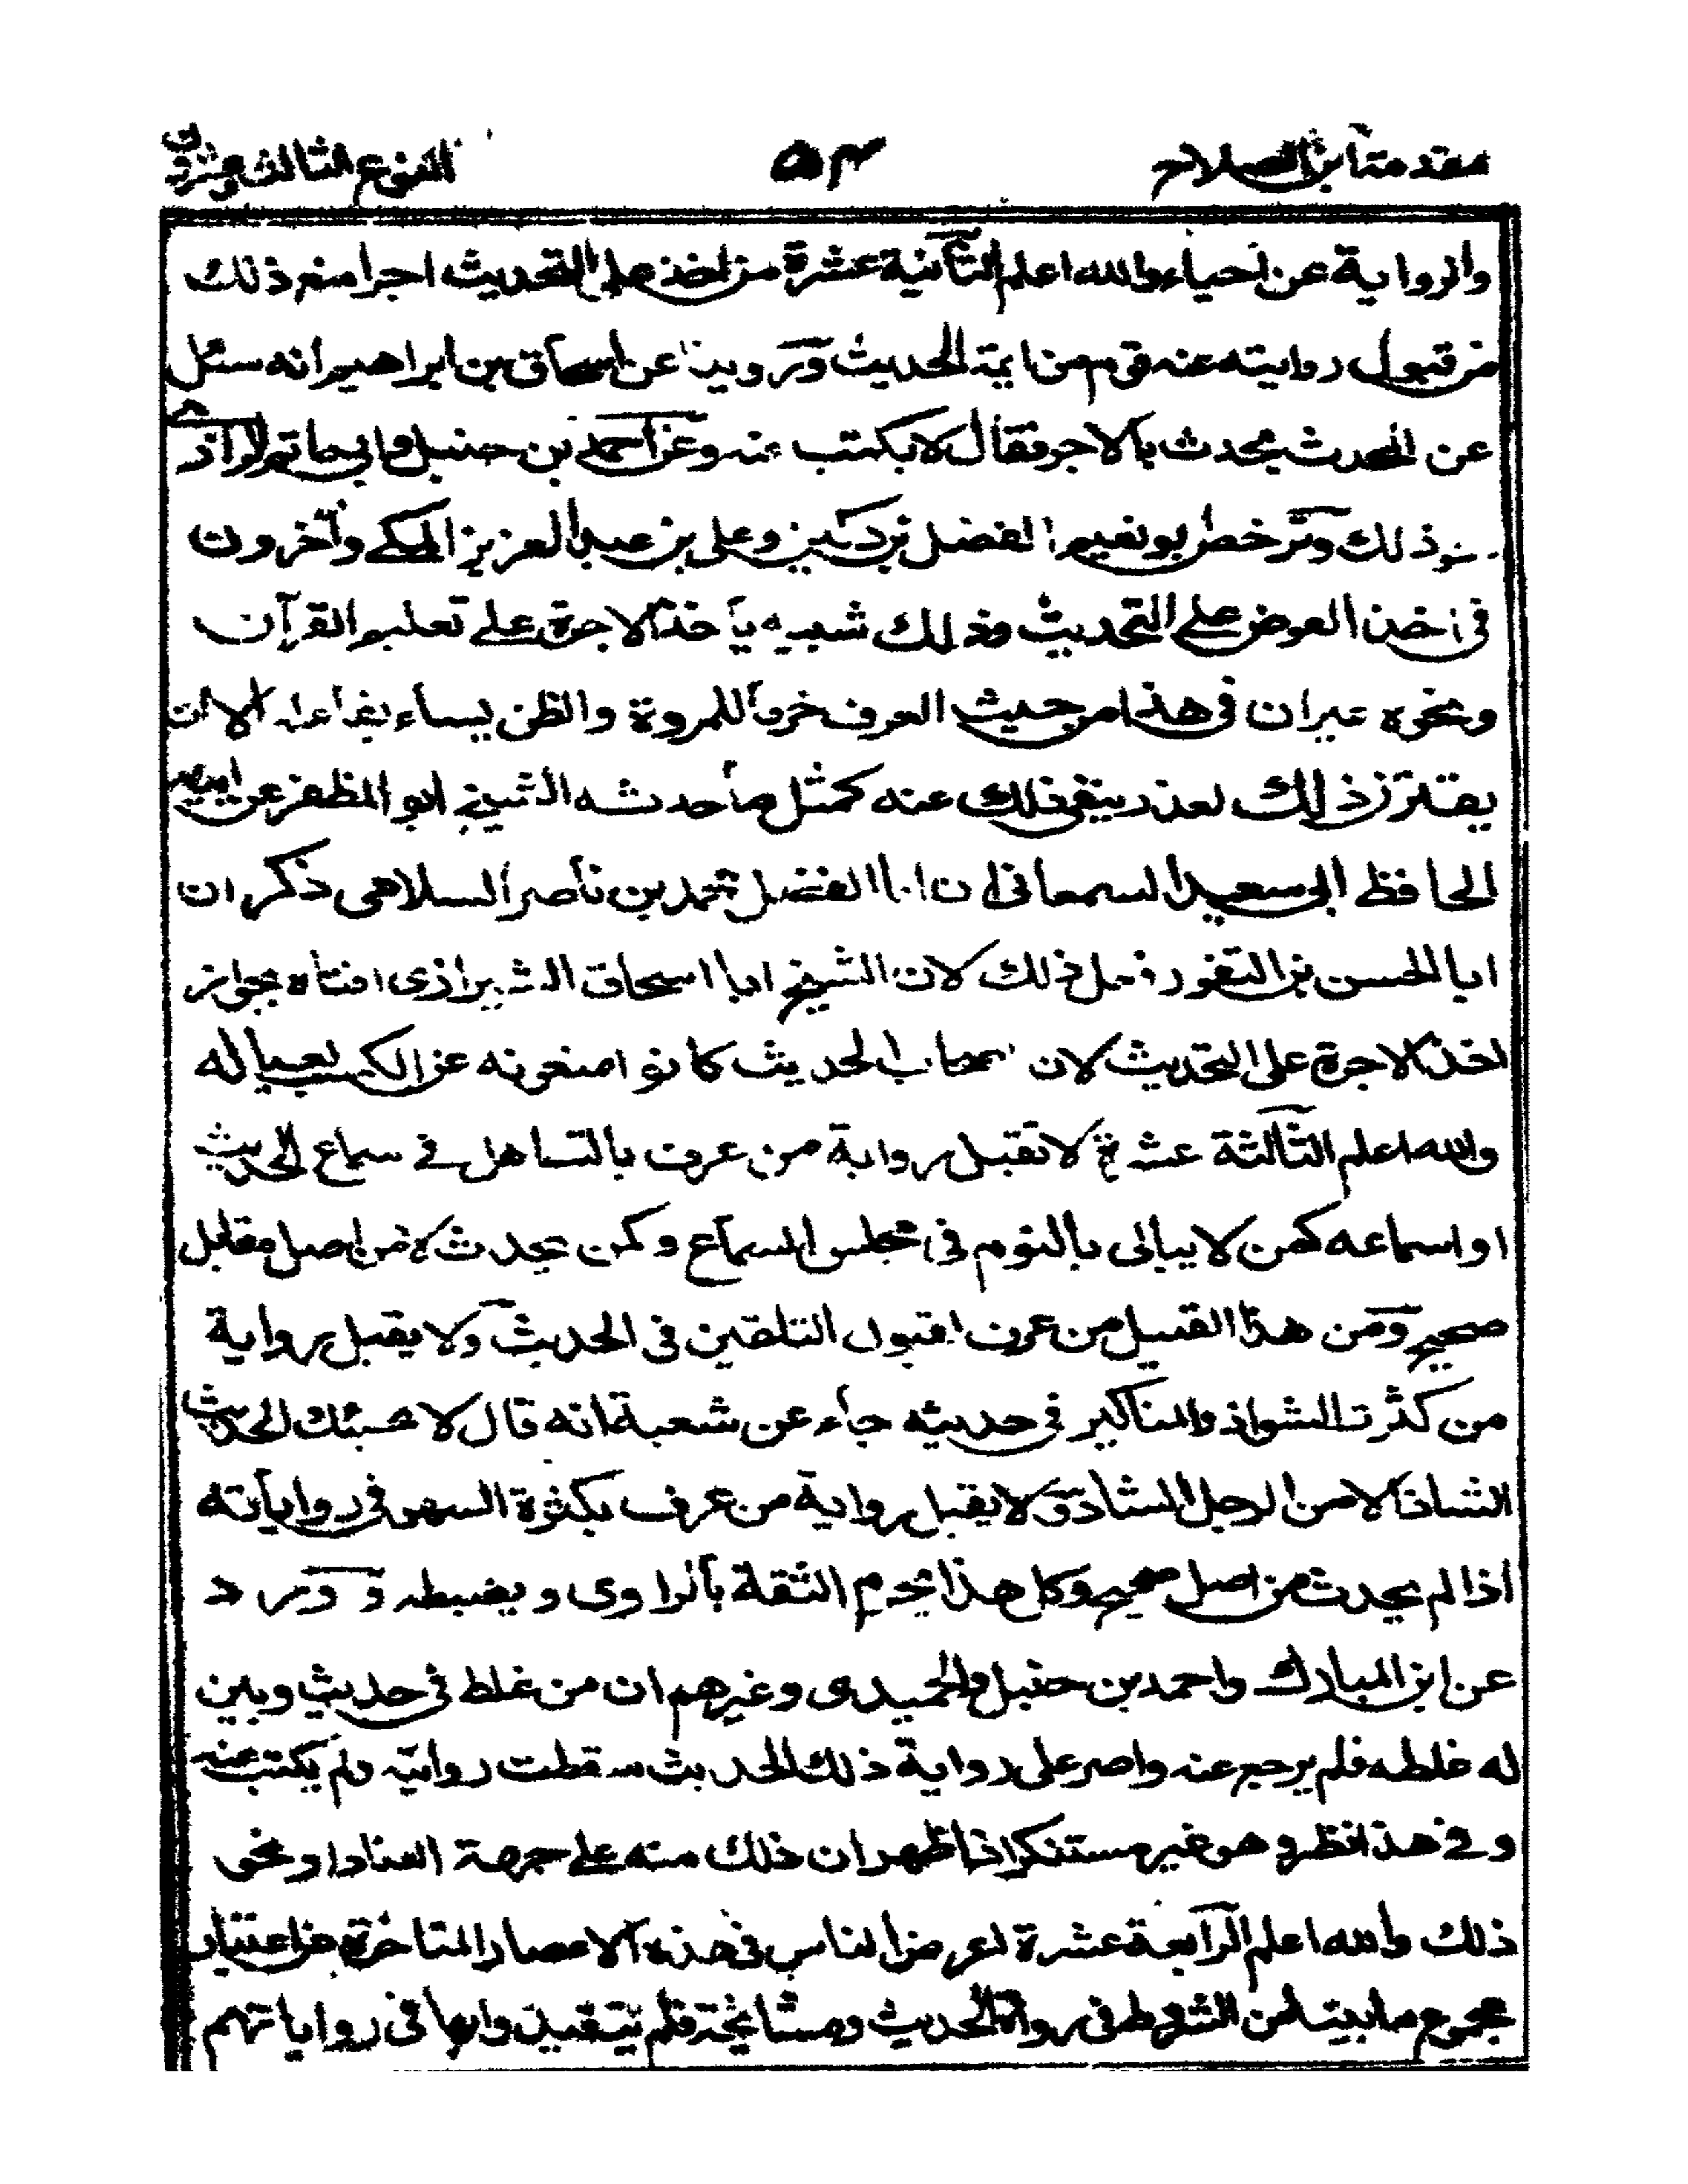 مقدمة ابن الصلاح ٥٣ النوع الثالث وعشرون
والرواية عن الاحياء والله اعلم الثانية عشرة من اخذ على التحديث اجرا منع ذلك
من قبول روايته عند قوم من ائمة الحديث وروينا عن اسحاق بن ابراهيم انه سئل
عن المحدث يحدث بالاجر فقال لا يكتب عنه وعن احمد بن حنبل وابي حاتم الرازي
نحو ذلك وترخص ابو نعيم الفضل بن دكين وعلى بن عبد العزيز المكے وآخرون
فى اخذ العوض على التحديث وذلك شبيه بأخذ الاجرة علے تعليم القرآن
ونحوه غير ان فى هذا من حيث العرف خرما للمروة والظن يساء بفاعله الا ان
يقترن ذلك لعذر ينفى ذلك عنه كمثل ما حدثه الشيخ ابو المظفر عن ابيه
الحافظ ابى سعيد السمعانى ان ابا الفضل محمد بن ناصر السلامى ذكر ان
ابا الحسن بن النقور فعل ذلك لان الشيخ ابا اسحاق الشيرازى افتاه بجواز
اخذ الاجرة على التحديث لان اصحاب الحديث كانوا يمنعونه عن الكسب لعياله
والله اعلم الثالثة عشرة لا تقبل رواية من عرف بالتساهل فے سماع الحديث
او اسماعه كمن لا يبالى بالنوم فى مجلس السماع وكمن يحدث لا من اصل مقابل
صحيح ومن هذا القبيل من عرف بقبول التلقين فى الحديث ولا يقبل رواية
من كثرت الشواذ والمناكير فى حديثه جاء عن شعبة انه قال لا يجيئك الحديث
الشاذ الا من الرجل الشاذ ولا يقبل رواية من عرف بكثرة السهو فى رواياته
اذا لم يحدث من اصل صحيح وكل هذا يخرم الثقة بالراوى وبضبطه و ورد
عن ابن المبارك واحمد بن حنبل والحميدى وغيرهم ان من غلط فى حديث وبين
له غلطه فلم يرجع عنه واصر على رواية ذلك الحديث سقطت روايته ولم يكتب عنه
وفے هذا نظر وهو غير مستنكر اذا ظهر ان ذلك منه علے جهة العناد او نحو
ذلك والله اعلم الرابعة عشرة اعرض الناس فى هذه الاعصار المتاخرة عن اعتبار
مجموع ما بينا من الشروط فى رواة الحديث ومشائخه فلم يتقيدوا بها فى رواياتهم